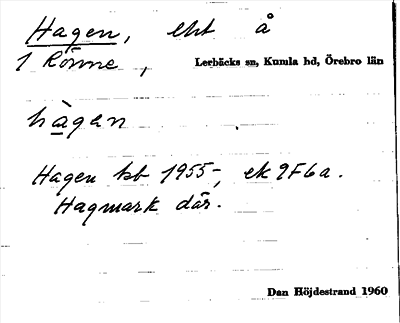 Hagen, eht å
1 Rönne, Lerbäcks sn, Kumla hd, Örebro län
hàgen
Hagen kb 1955-, ek 9F6a.
Hagmark där.
Dan Höjdestrand 1960